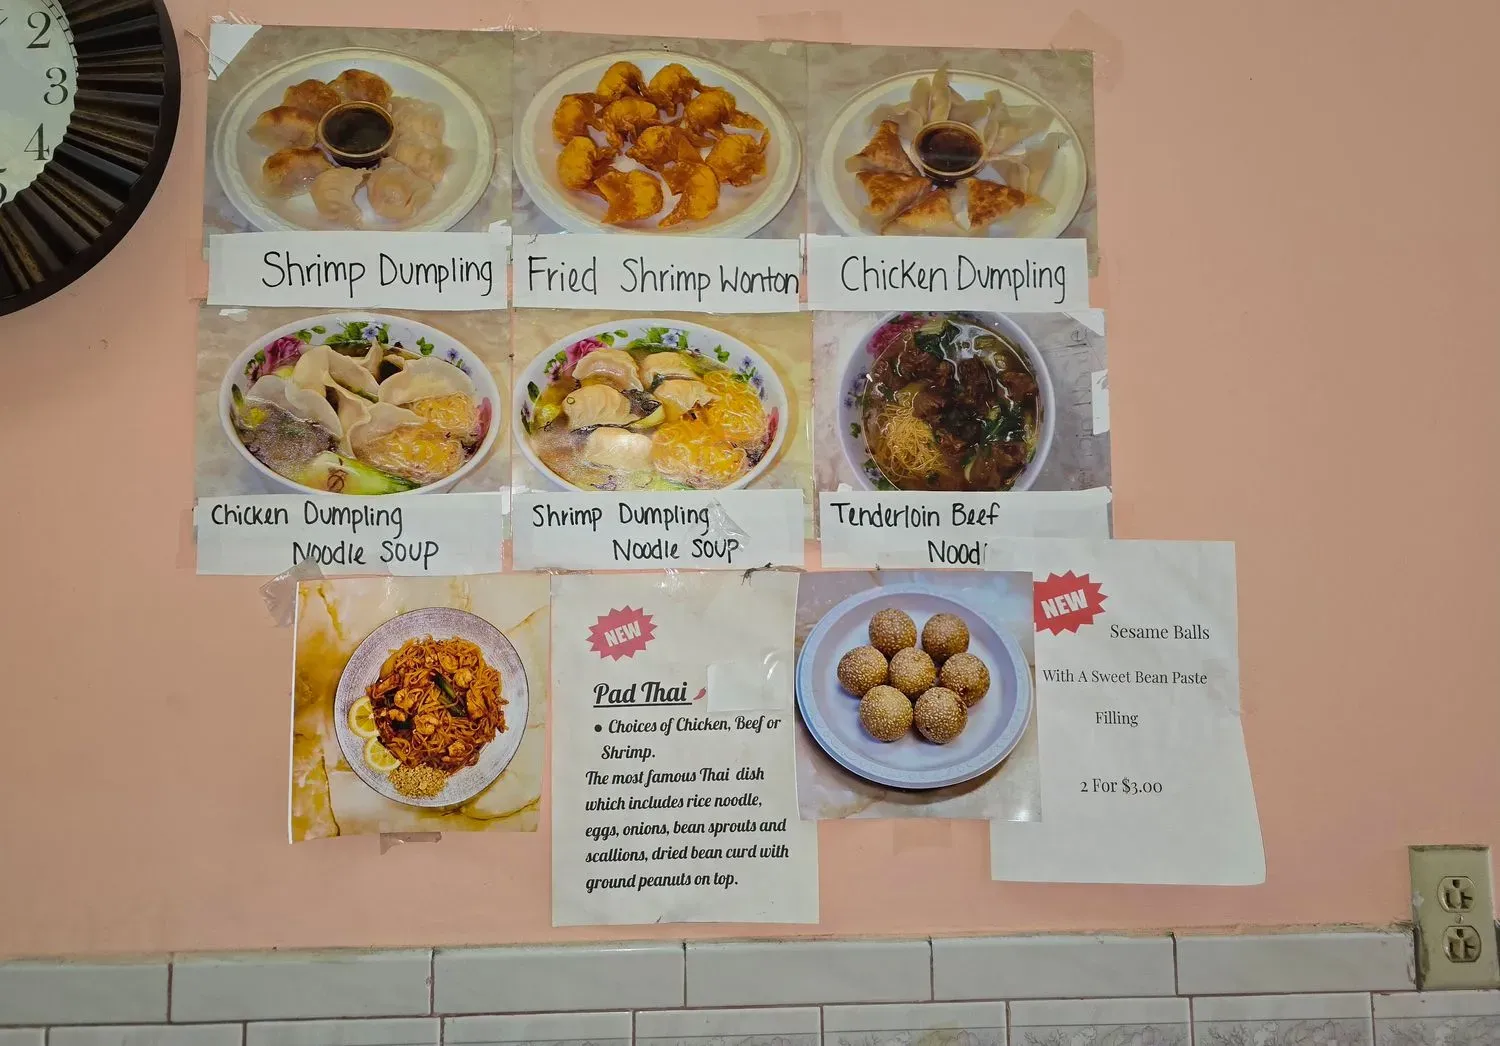 2
3
4
Shrimp Dumpling
Fried Shrimp Wonton
Chicken Dumpling
Chicken Dumpling
Noodle Soup
Shrimp Dumpling
Noodle Soup
Tenderloin Beef
Nood
NEW
Pad Thai
• Choices of Chicken, Beef or
Shrimp.
The most famous Thai dish
which includes rice noodle,
eggs, onions, bean sprouts and
scallions, dried bean curd with
ground peanuts on top.
NEW
Sesame Balls
With A Sweet Bean Paste
Filling
2 For $3.00